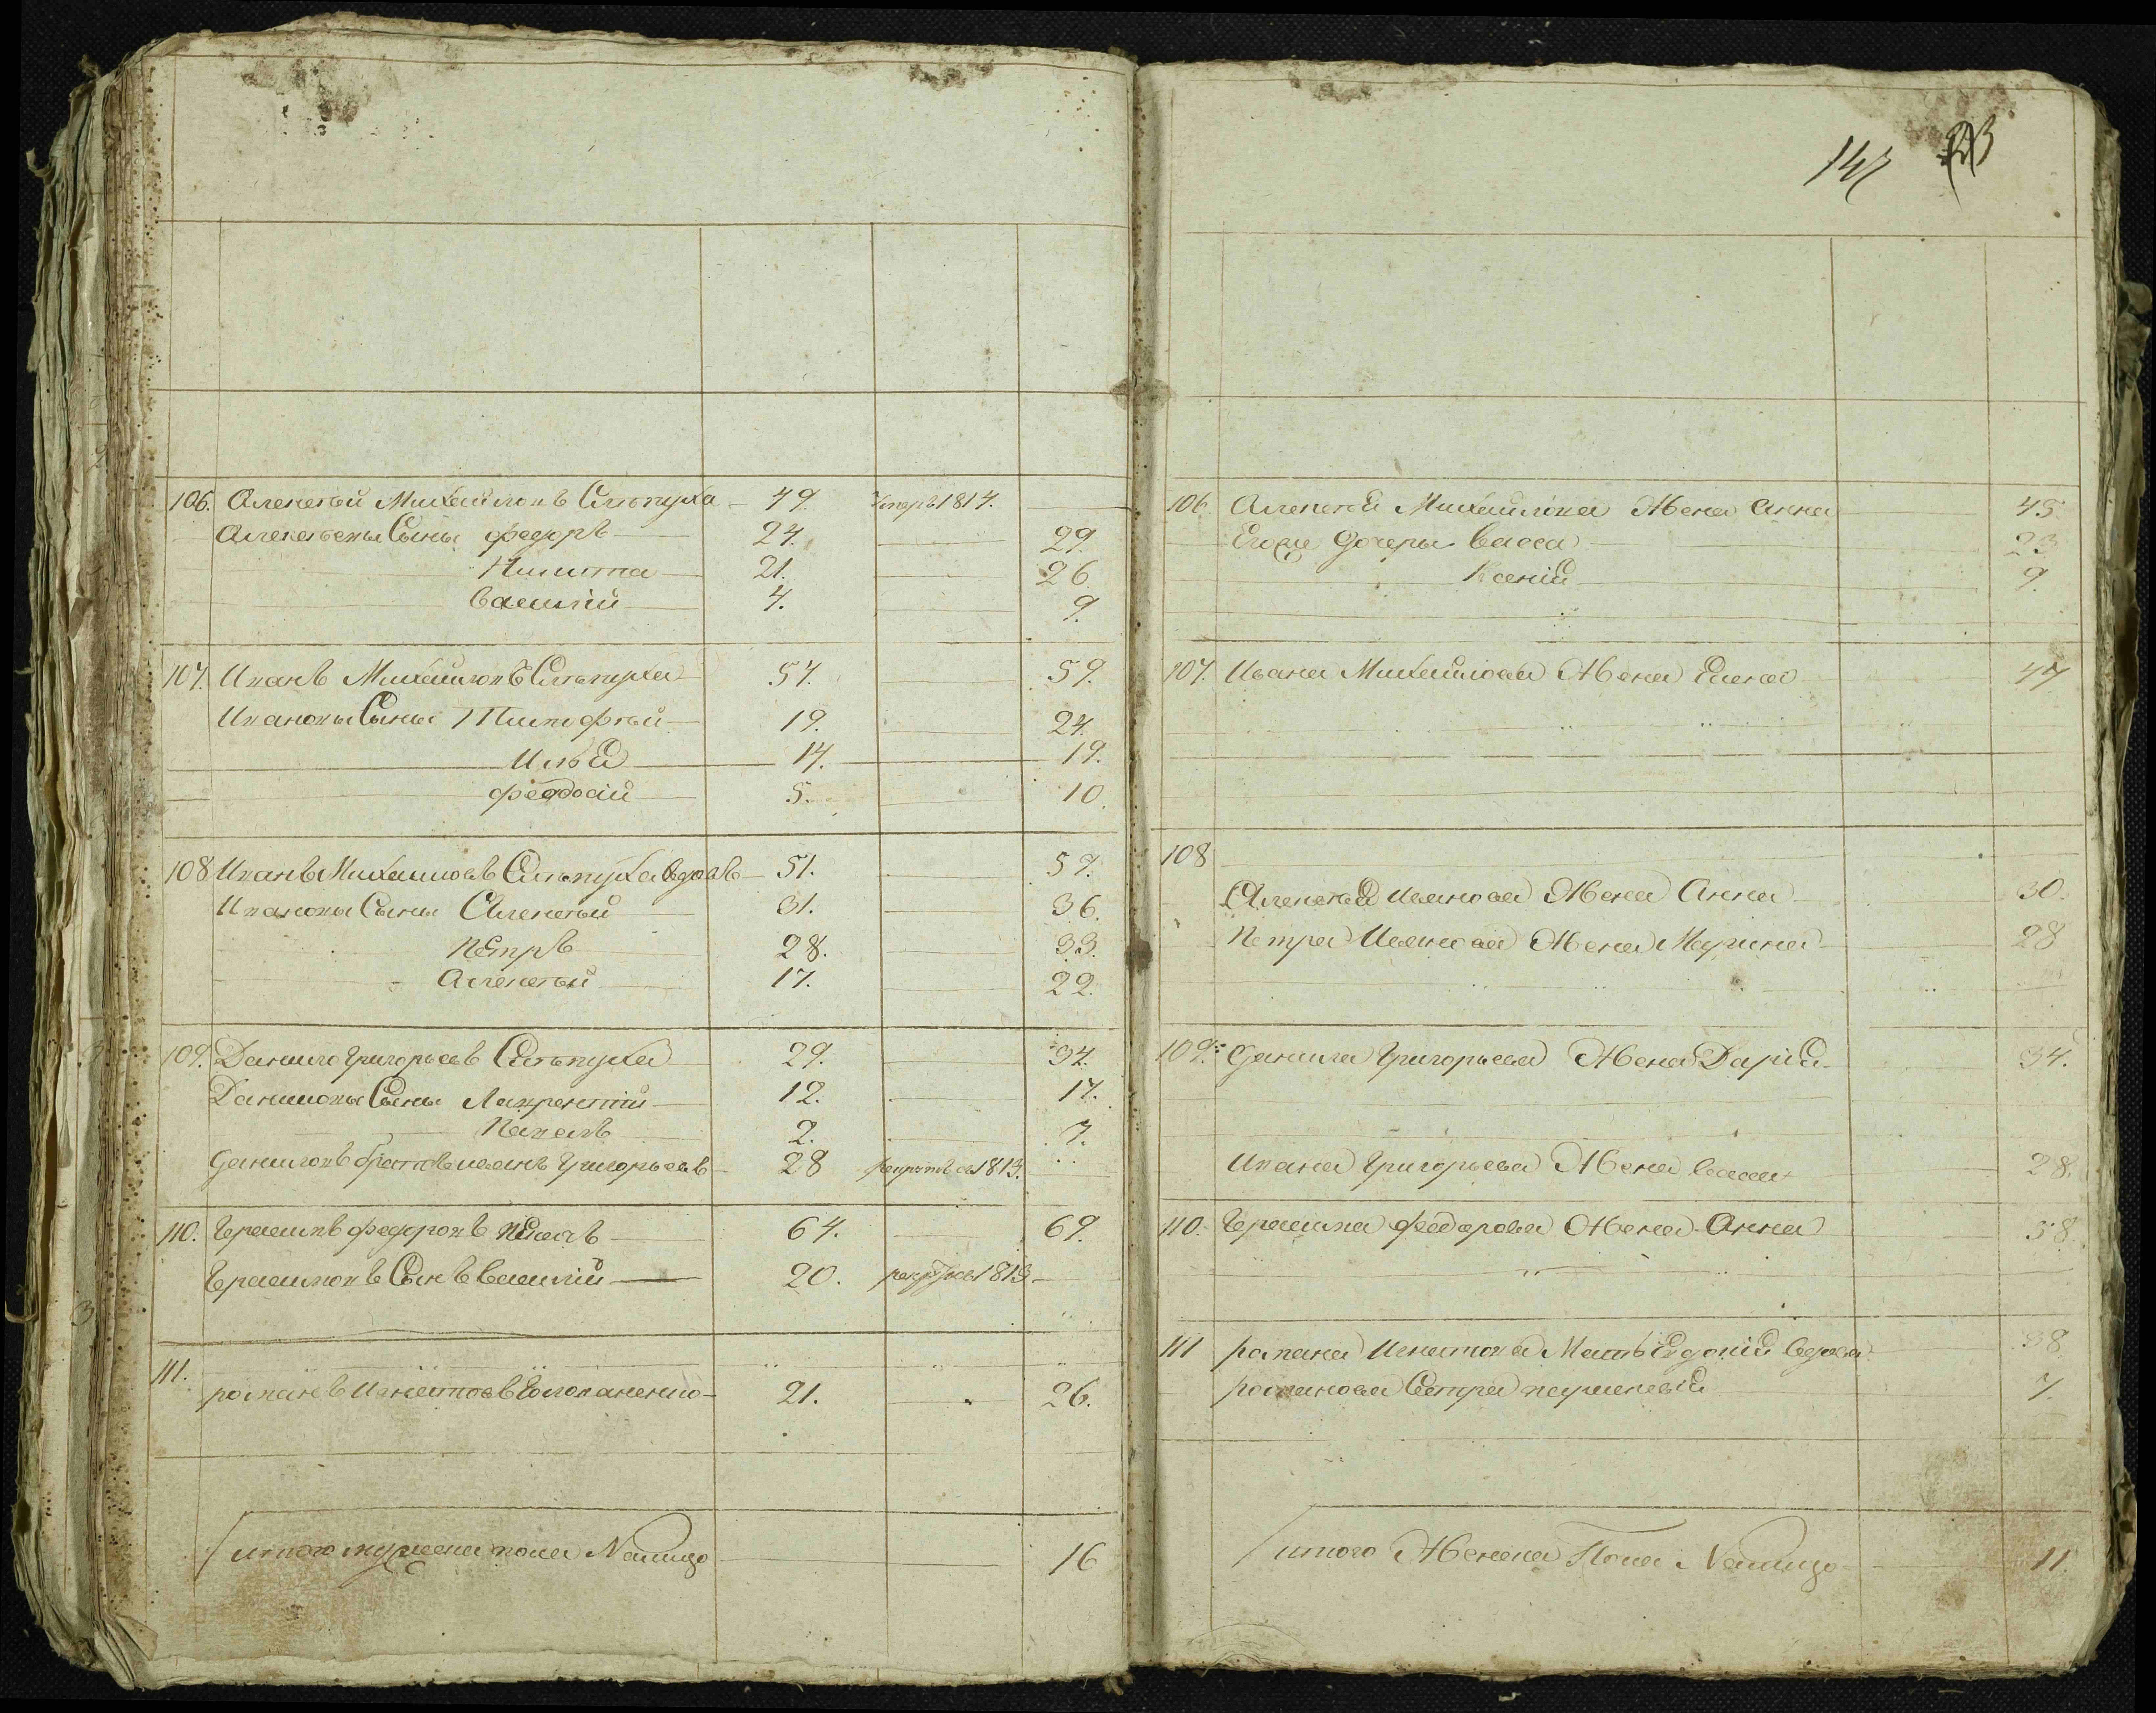 147
106. Алексей Михайловъ 49. умеръ 1814.
Алексеевы Сыны федоръ 24. 29.
Никита 21. 26
василий 4. 9.
107. Иванъ Михайловъ 54. 59.
Ивановы Сыны Тимофей 19. 24.
Илья 14. 19.
феодосий 5. 10.
108 Иванъ Михайловъ вдовъ 51. 57.
Ивановы Сыны Алексей 31. 36.
Петръ 28. 33.
Алексей 17. 22.
109. Данило Григорьевъ 29. 34.
Даниловы Сыны Лаврентий 12. 17.
Павелъ 2. 7.
Даниловъ братъ иванъ Григорьевъ 28 1813.
110. Герасимъ федоровъ 64. 69.
Герасимовъ Сынъ василий 20. 1813
111.
романъ Игнатовъ 21. 26.
итого мужеска пола Налицо 16
106. Алексея Михайлова Жена анна 45
Его же дочеры васса 23
Ксения 9.
107. Ивана Михайлова Жена Елена 47
108
Алексея Иванова Жена Анна 30.
Петра Иванова Жена Марина 28
109. Данила Григорьева Жена Дария 34.
Ивана Григорьева Жена 28.
110. Герасима федорова Жена Анна 58.
111 романа Игнатова Мать Евдокия вдова 38
романова Сестра 7.
итого Женска Пола Налицо 11.